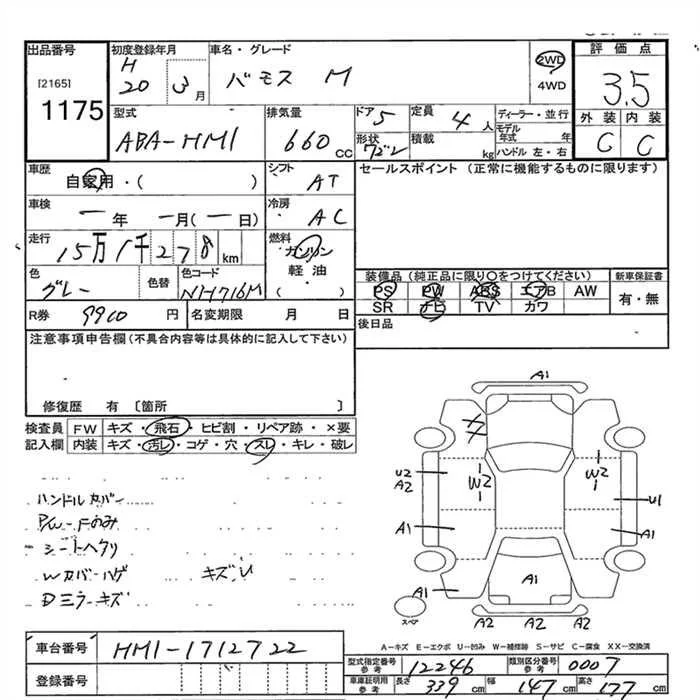 出品番号
[2165]
1175
初度登録年月
H
20 3月
車名・グレード
バモス M
2WD
4WD
評価点
3.5
外装 内装
C C
型式
ABA-HM1
排気量
660 CC
ドア 5
形状 ワゴン
定員 4人
積載 kg
ディーラー・並行
モデル年式 年
ハンドル 左・右
車歴
自家用・( )
シフト AT
車検
一年 一月(一日)
冷房 AC
走行
15万1千278km
燃料
ガソリン
軽油
( )
色
グレー
色替
色コード
NH716M
R券 9900円
名変期限 月 日
セールスポイント (正常に機能するものに限ります)
装備品 (純正品に限り○をつけてください)
PS PW ABS エアB AW
SR ナビ TV カワ
新車保証書
有・無
後日品
注意事項申告欄(不具合内容等は具体的に記入して下さい)
修復歴 有 〔箇所 〕
検査員記入欄
FW キズ・飛石・ヒビ割・リペア跡・×要
内装 キズ・汚レ・コゲ・穴・スレ・キレ・破レ
ハンドルカバー
PW-Fのみ
シートヘタリ
Wカバーハゲ キズU
Dミラーキズ
A1
U2
A2
W2
W2
U1
A1
A1
A1
A1
A2 A2 A2
スペア
A-キズ E-エクボ U-凹み W-補修跡 S-サビ C-腐食 XX-交換済
車台番号 HM1-1712722
登録番号
型式指定番号 参考 12246
類別区分番号 参考 0007
車庫証明用 参考 長さ 339cm 幅 147cm 高さ 177cm